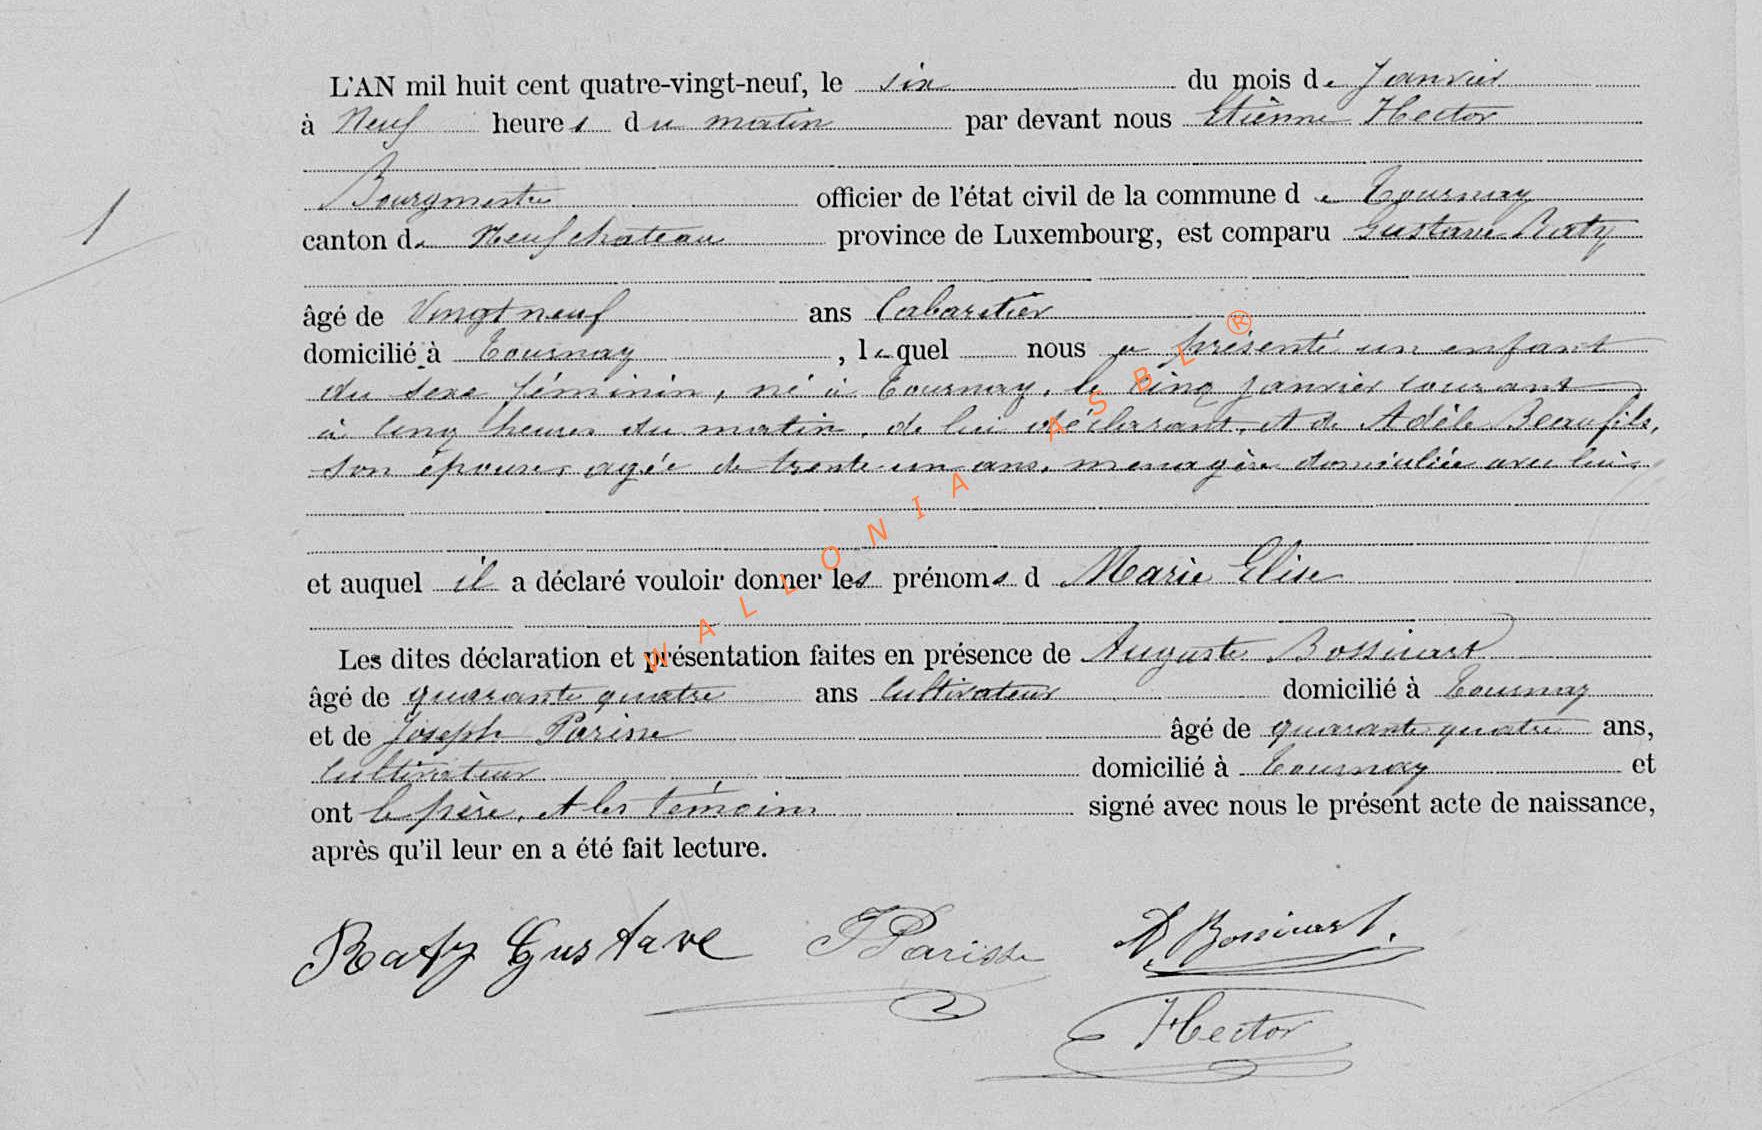 L'AN mil huit cent quatre-vingt-neuf, le six du mois de Janvier
à Neuf heures du matin par devant nous Etienne Hector
Bourgmestre officier de l'état civil de la commune de Tournay
1
canton de Neufchateau province de Luxembourg, est comparu Gustave Raty
âgé de Vingt neuf ans Cabaretier
domicilié à Tournay, lequel nous a présenté un enfant
du sexe féminin, né à Tournay, le cinq janvier courant
à cinq heures du matin, de lui déclarant, et de Adèle Beaufils,
son épouse, agée de trente-un ans, menagère domiciliée avec lui
et auquel il a déclaré vouloir donner les prénoms d Marie Elise
Les dites déclaration et présentation faites en présence de Auguste Bossicart
âgé de quarante quatre ans Cultivateur domicilié à Tournay
et de Joseph Parisse âgé de quarante quatre ans,
Cultivateur domicilié à Tournay et
ont le père, et les témoins signé avec nous le présent acte de naissance,
après qu'il leur en a été fait lecture.
Raty Gustave J Parisse A. Bossicart.
Hector
WALLONIA ASBL ®